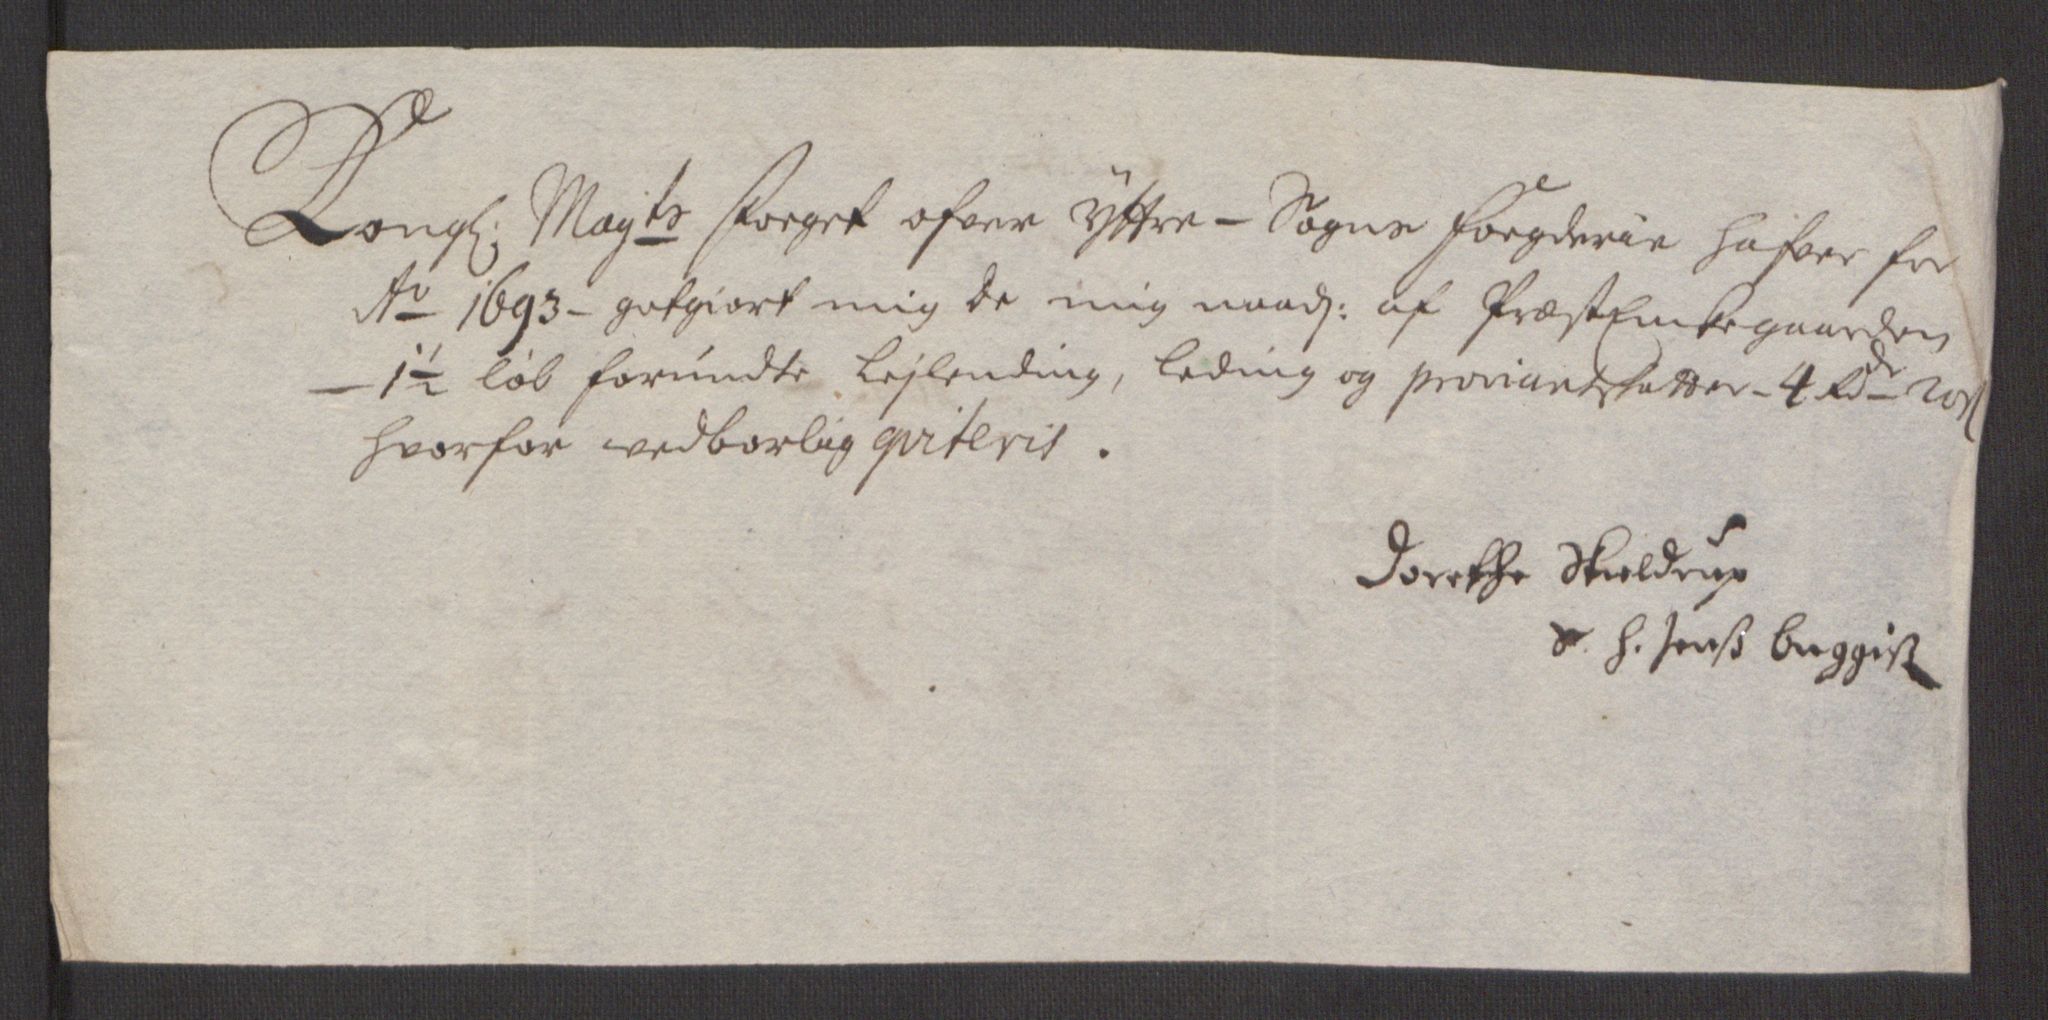 Kongl: Mayts foeget ofver Yttre - Sogns foegderie hafver for
Ao 1693 - gotgiort mig de mig naadl: af Præst Enkegaarden
- 1½ løb forundte Lejlending, leding og proviantskatter - 4 Rdr - 20 s
hvorfor vedborlig qviteris.
Dorethe Skieldrup
S. H. Jenss Buggis